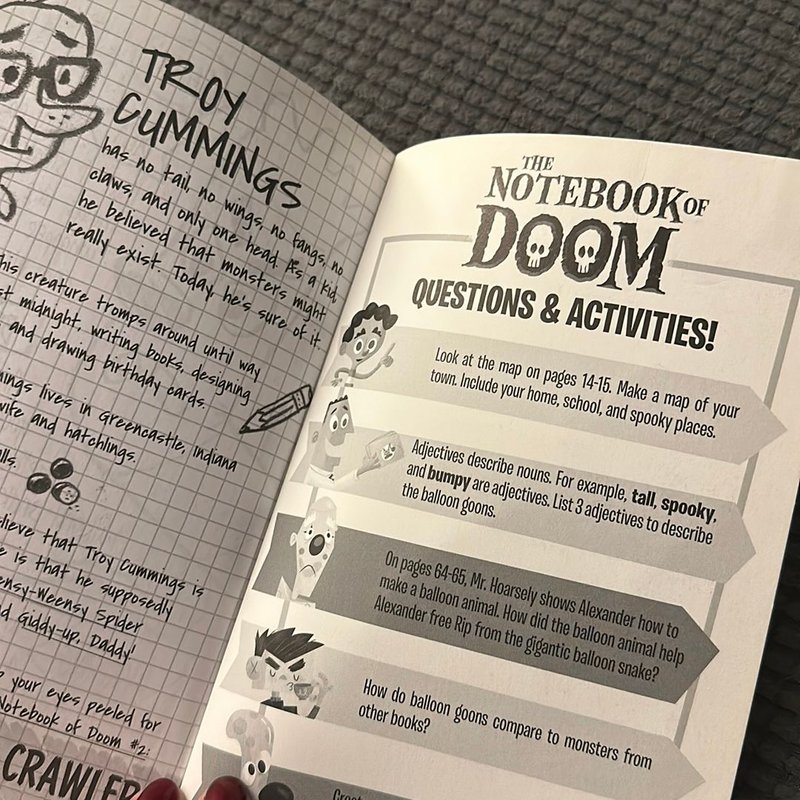 TROY
CUMMINGS
has no tail, no wings, no fangs, no
claws, and only one head. As a kid,
he believed that monsters might
really exist. Today, he's sure of it.
his creature tromps around until way
st midnight, writing books, designing
and drawing birthday cards.
ings lives in Greencastle, Indiana
wife and hatchlings.
lls.
lieve that Troy Cummings is
e is that he supposedly
ensy-Weensy Spider
d Giddy-up, Daddy!
your eyes peeled for
Notebook of Doom #2:
CRAWLER
THE
NOTEBOOK OF
DOOM
QUESTIONS & ACTIVITIES!
Look at the map on pages 14-15. Make a map of your
town. Include your home, school, and spooky places.
Adjectives describe nouns. For example, tall, spooky,
and bumpy are adjectives. List 3 adjectives to describe
the balloon goons.
On pages 64-65, Mr. Hoarsely shows Alexander how to
make a balloon animal. How did the balloon animal help
Alexander free Rip from the gigantic balloon snake?
How do balloon goons compare to monsters from
other books?